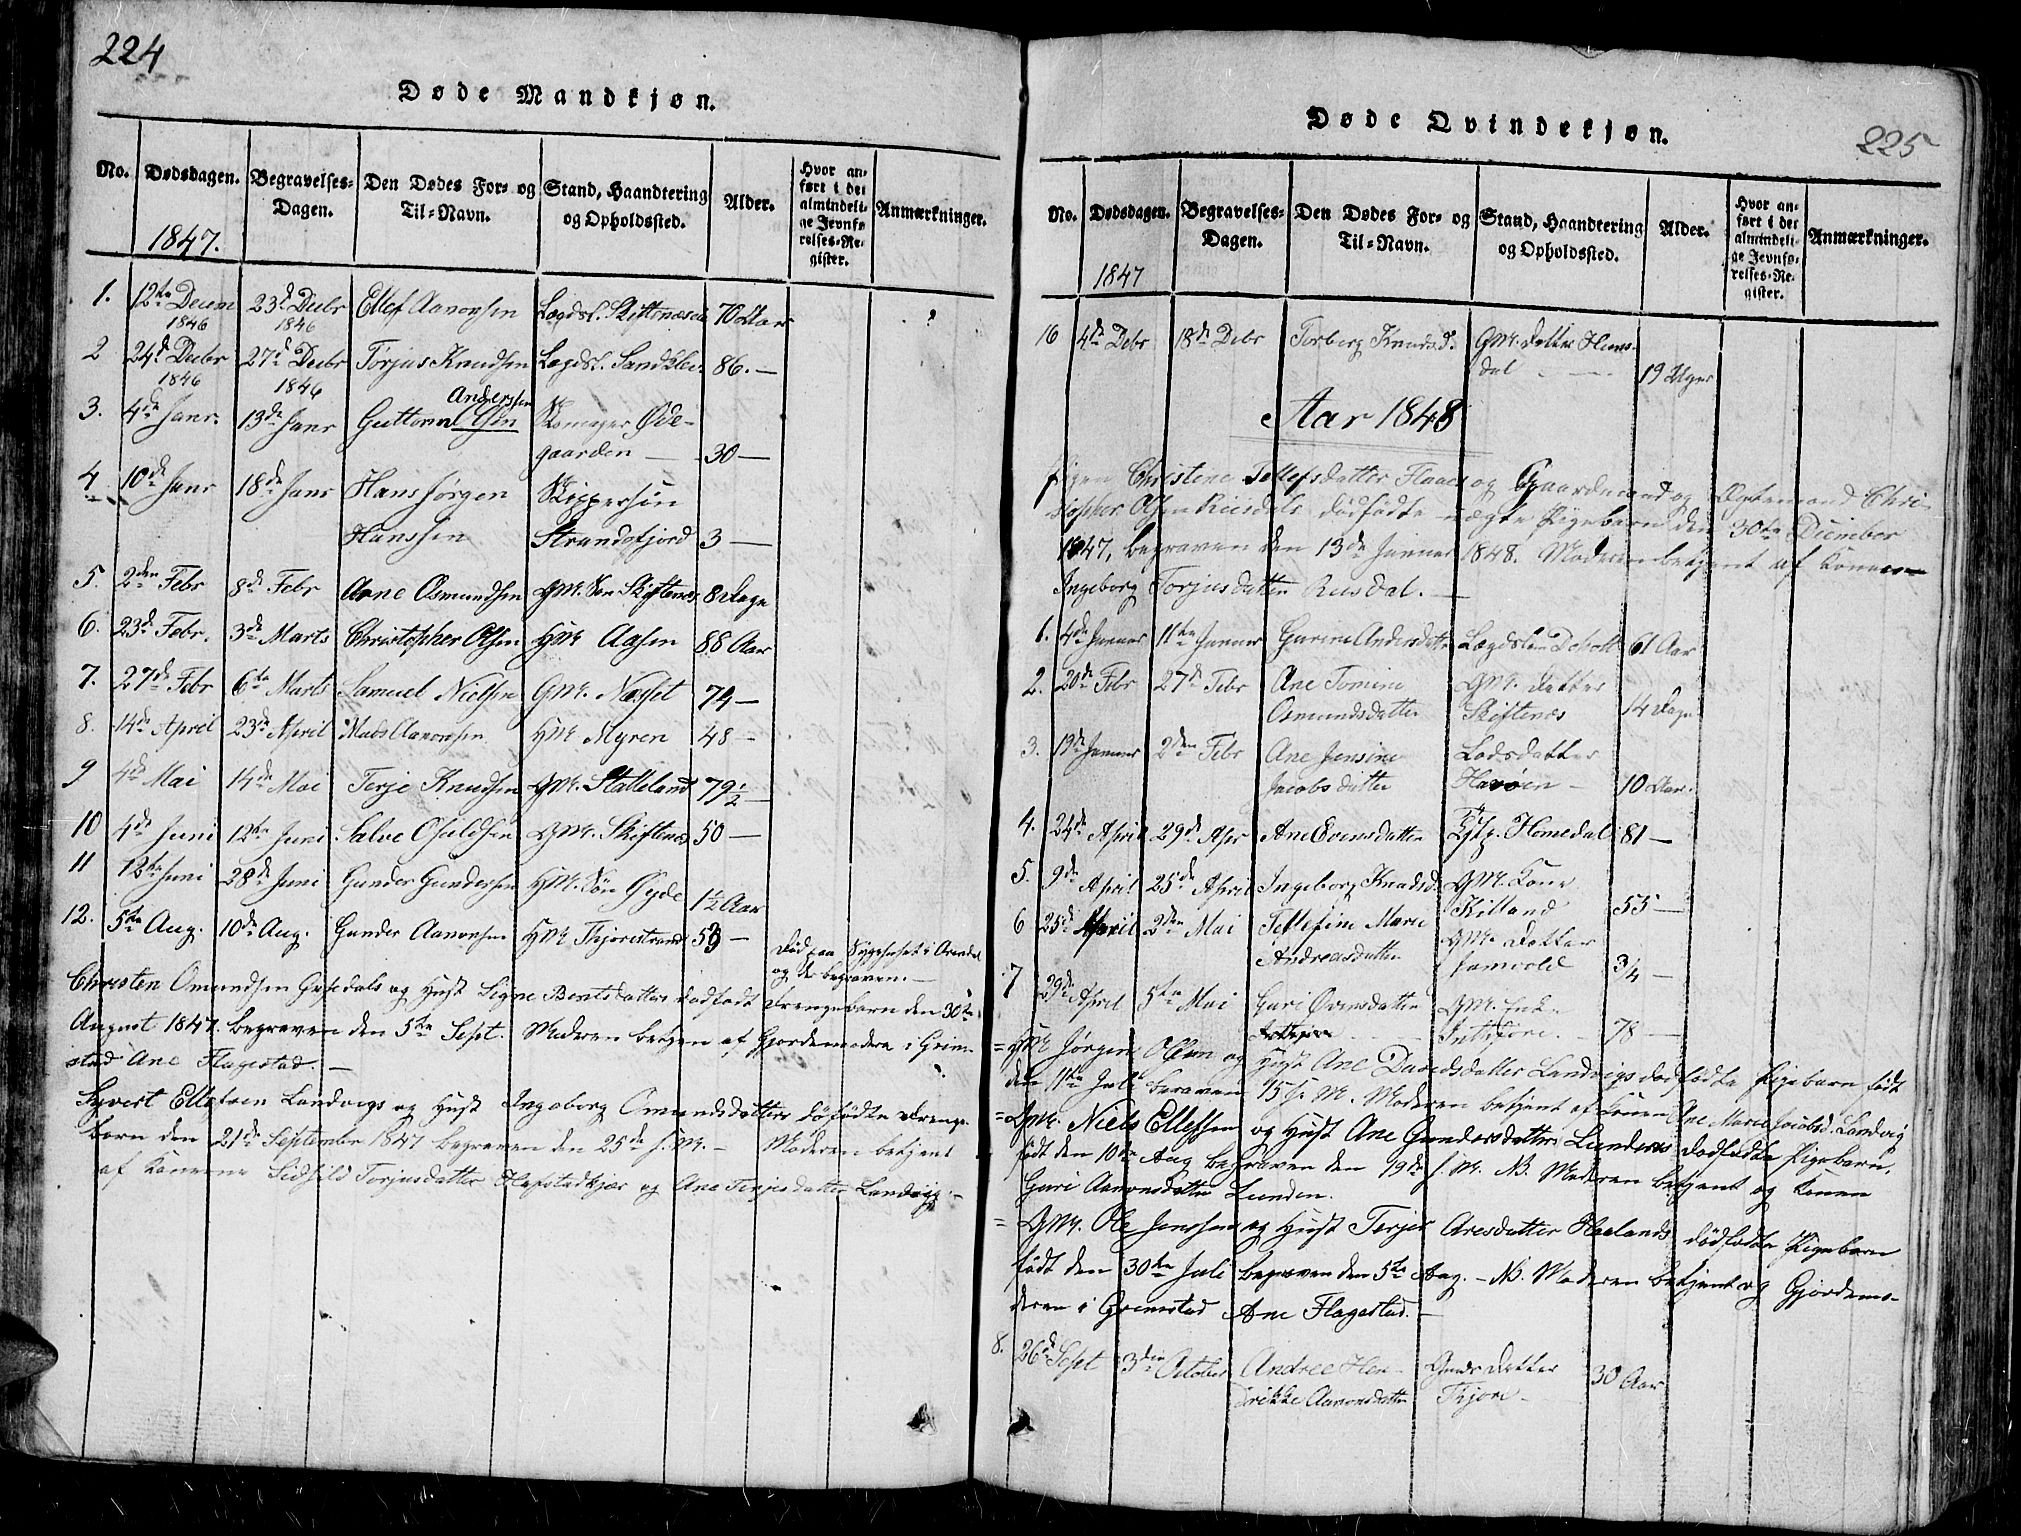 224
Døde Mandkjøn.
No. Dødsdagen. Begravelses-Dagen. Den Dødes For- og Til-Navn. Stand, Haandtering og Opholdssted. Alder. Hvor anført i det almindelige Jevnførelses-Register. Anmærkninger.
1847.
1. 12te Decem 1846 23d Decbr 1846 Ellef Aanonsen Lægdsl. 70 Aar
2 24d Decbr 1846 27d Decbr 1846 Torjus Knudsen Lægdsl. 86. —
Anderssen
3. 4de Janr. 13de Janr Guttorm Olsen Skomager Øde-
gaarden — 30 —
4 10de Janr 18de Janr Hans Jørgen Skippersøn
Hanssen Strandefjord 3 —
5. 2den Febr 8de Febr Arne Osmundsen GM. Søn Skiftenæs 8 Dage
6. 23de Febr. 3de Marts Christopher Olsen HM Aasen 88 Aar
7. 27de Febr 6te Marts Samuel Nielsen GM. Næsset 74 —
8. 14de April 23de April Mads Aanonsen HM. Myren 48 —
9 4de Mai 14de Mai Terje Knudsen GM. Stalleland 79½ —
10 4de Juni 12te Juni Salve Osuldsen GM. Skiftenæs 50 —
11 12te Juni 28de Juni Gunder Gundersen HM. Søn Øyde 1½ Aar
12. 5te Aug. 10de Aug. Gunder Aanonsen HM Thjorestrand 53 — Død paa Sygehuset i Arendal
og der begraven. —
Christen Omundsen Grødals og Hust Signe Bentsdatters dødfødt Drengebarn den 30te
August 1847. begraven den 5te Sept. Moderen betjen af Gjordemodern i Grim-
stad Ane Flagestad. —
Syvert Ellefsen Landvigs og Hust Ingeborg Omundsdatters døfødte Drenge-
barn den 21de September 1847 begraven den 25de s. M. — Moderen betjent
af Konerne Sidsild Torjusdatter Hafstadkjær og Ane Terjesdatter Landvig. —
225
Døde Qvindekjøn.
No. Dødsdagen. Begravelses-Dagen. Den Dødes For- og Til-Navn. Stand, Haandtering og Opholdssted. Alder. Hvor anført i det almindelige Jevnførelses-Register. Anmærkninger.
1847
16 4de Debr 18de Debr Torborg Knudsd. GM. Datter
dal — 19 Uger
Aar 1848
Pigen Christene Tellefsdatter Flaaes og Gaardmand og Ægtemand Chri-
stopher Olsen Riisdals dødfødte uægte Pigebarn den 30te Dicember
1847, begraven den 13de Januar 1848. Moderen betjent af Konen
Ingeborg Torjusdatter Riisdal. —
1. 4de Januar 11te Januar Gurine Andersdatter Lægdslem 61 Aar
2. 20de Febr 27de Febr Ane Tomine GM. Datter
Osmundsdatter Skiftenæs 14 Dage
3. 19de Januar 2den Febr Ane Jensine Lodsdatter
Jacobsdatter Havøen — 10 Aar.
4. 24de April 29de Apr Ane Evensdatter Homedal 81 —
5. 9de April 25de April Ingeborg Knudsd. GM. Kone
Killand 55 —
6 25de April 2den Mai Tellefine Marie GM. Datter
Andreasdatter 3/4 —
7 29de April 5te Mai Guri Ovensdatter GM. Enk-
78 —
= HM Jørgen Olsen og Hust Ane Davidsdatter Landvigs dødfødte Pigebarn født
den 11te Juli beraven 15 s. M. Moderen betjent af Konen Ane Marie Jacobsd. Landvig
= GM. Niels Ellefsen og Hust Ane Gundersdatters Lundens dødfødte Pigebarn,
født den 10de Aug begraven den 19de s. M. NB. Moderen betjent og Konen
Guri Aanonsdatter Lunden.
= GM. Ole Jenssen og Hust Terjer Aresdatter Hælands dødfødte Pigebarn
født den 30te Juli begraven den 5te Aug. — NB. Moderen betjent og Gjordemo-
deren i Grimstad Ane Flagestad. —
8. 26de Sept 3die October Andree Hen- Gmds Datter
drikke Aanonsdatter Thjore — 30 Aar